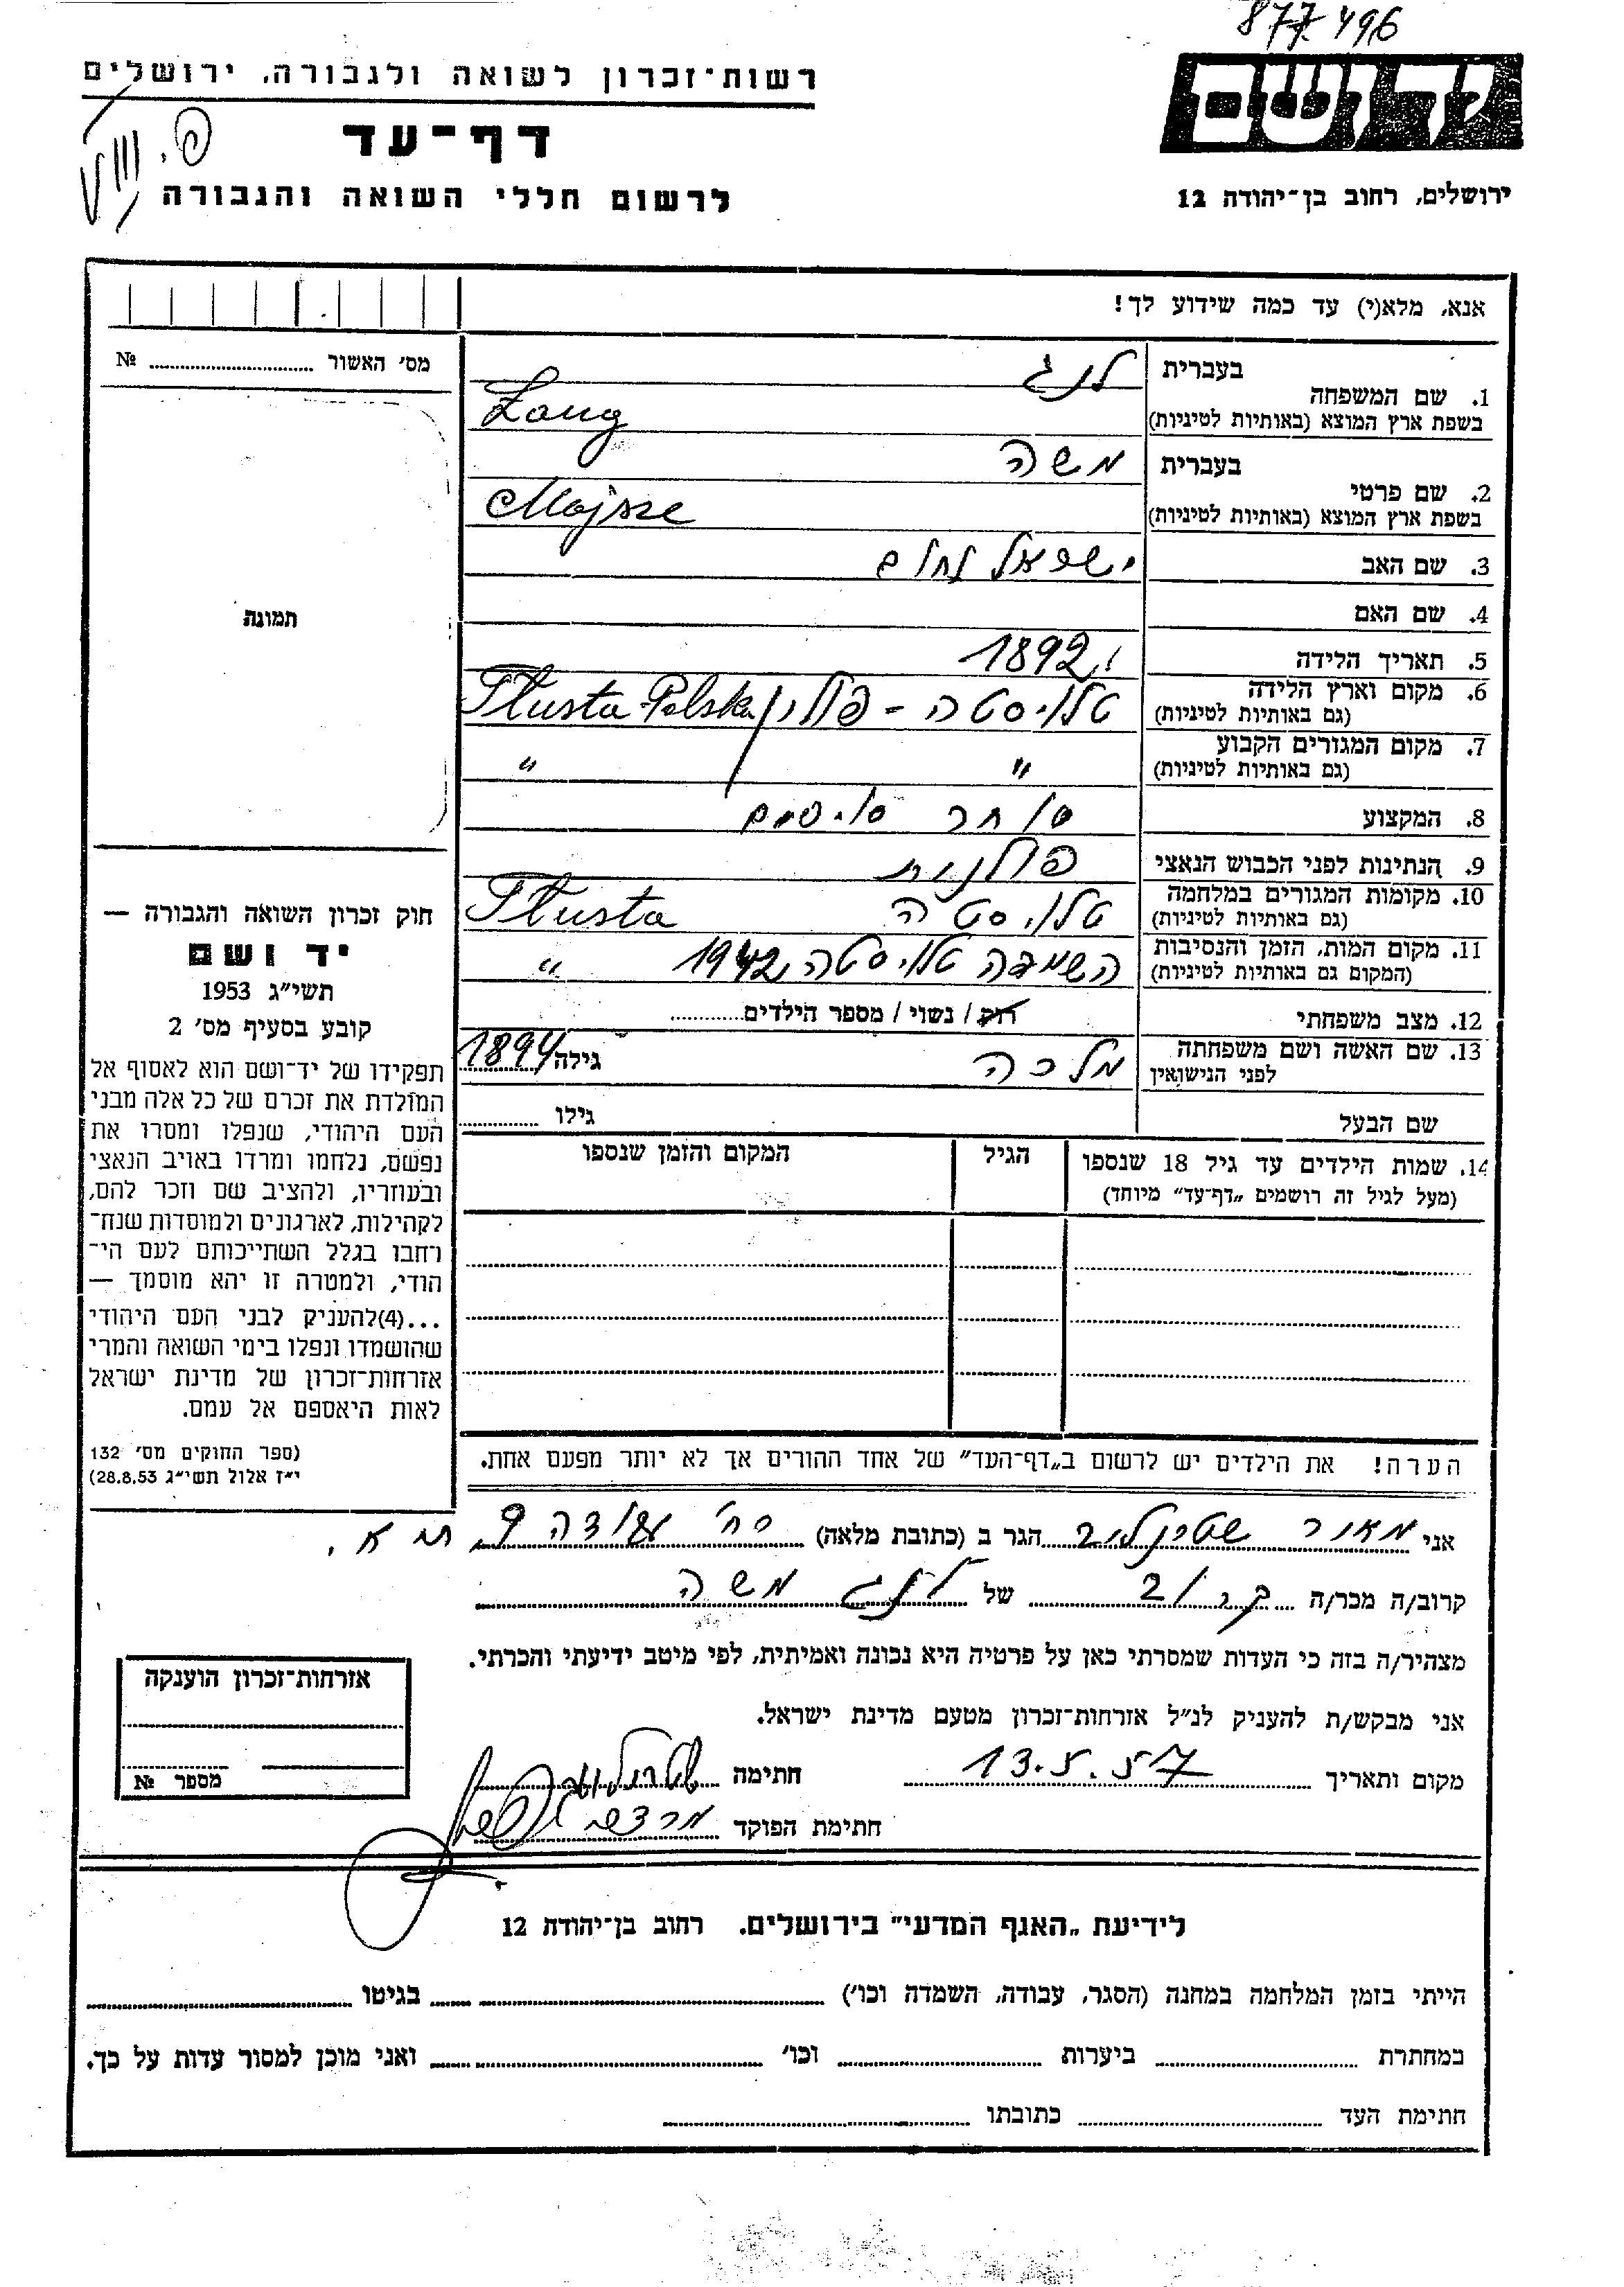 877.496
יד ושם
רשות־זכרון לשואה ולגבורה, ירושלים
דף־עד
לרשום חללי השואה והגבורה
ירושלים, רחוב בן־יהודה 12
אנא, מלא(י) עד כמה שידוע לך!
מס׳ האשור № ..........
תמונה
בעברית לנג
1. שם המשפחה
בשפת ארץ המוצא (באותיות לטיניות) Lang
בעברית משה
2. שם פרטי
בשפת ארץ המוצא (באותיות לטיניות) Mojsze
3. שם האב ישראל נחום
4. שם האם
5. תאריך הלידה 1892
6. מקום וארץ הלידה
(גם באותיות לטיניות) טלויסטה - פולין Tłusta Polska
7. מקום המגורים הקבוע
(גם באותיות לטיניות) " "
8. המקצוע סוחר סוסים
9. הנתינות לפני הכבוש הנאצי פולנית
10. מקומות המגורים במלחמה
(גם באותיות לטיניות) טלויסטה Tłusta
11. מקום המות, הזמן והנסיבות
(המקום גם באותיות לטיניות) השמדה טלויסטה 1942 "
12. מצב משפחתי רוק / נשוי / מספר הילדים..........
13. שם האשה ושם משפחתה
לפני הנישואין מלכה גילה 1894
שם הבעל גילו ..........
14. שמות הילדים עד גיל 18 שנספו
(מעל לגיל זה רושמים „דף־עד” מיוחד)
הגיל
המקום והזמן שנספו
הערה! את הילדים יש לרשום ב„דף־העד” של אחד ההורים אך לא יותר מפעם אחת.
חוק זכרון השואה והגבורה —
יד ושם
תשי״ג 1953
קובע בסעיף מס׳ 2
תפקידו של יד־ושם הוא לאסוף אל
המולדת את זכרם של כל אלה מבני
העם היהודי, שנפלו ומסרו את
נפשם, נלחמו ומרדו באויב הנאצי
ובעוזריו, ולהציב שם וזכר להם,
לקהילות, לארגונים ולמוסדות שנח־
רחבו בגלל השתייכותם לעם הי־
הודי, ולמטרה זו יהא מוסמך —
...(4)להעניק לבני העם היהודי
שהושמדו ונפלו בימי השואה והמרי
אזרחות־זכרון של מדינת ישראל
לאות היאספם אל עמם.
(ספר החוקים מס׳ 132
י״ז אלול תשי״ג 28.8.53)
אני מאיר הגר ב (כתובת מלאה) רח׳ 9 ת״א.
קרוב/ה מכר/ה קרוב של לנג משה
מצהיר/ה בזה כי העדות שמסרתי כאן על פרטיה היא נכונה ואמיתית, לפי מיטב ידיעתי והכרתי.
אני מבקש/ת להעניק לנ״ל אזרחות־זכרון מטעם מדינת ישראל.
מקום ותאריך 13.5.57 חתימה
חתימת הפוקד מרדכי
אזרחות־זכרון הוענקה
מספר №
לידיעת „האגף המדעי” בירושלים. רחוב בן־יהודה 12
הייתי בזמן המלחמה במחנה (הסגר, עבודה, השמדה וכו׳) .......... בגיטו ..........
במחתרת .......... ביערות .......... וכו׳ .......... ואני מוכן למסור עדות על כך.
חתימת העד .......... כתובתו ..........